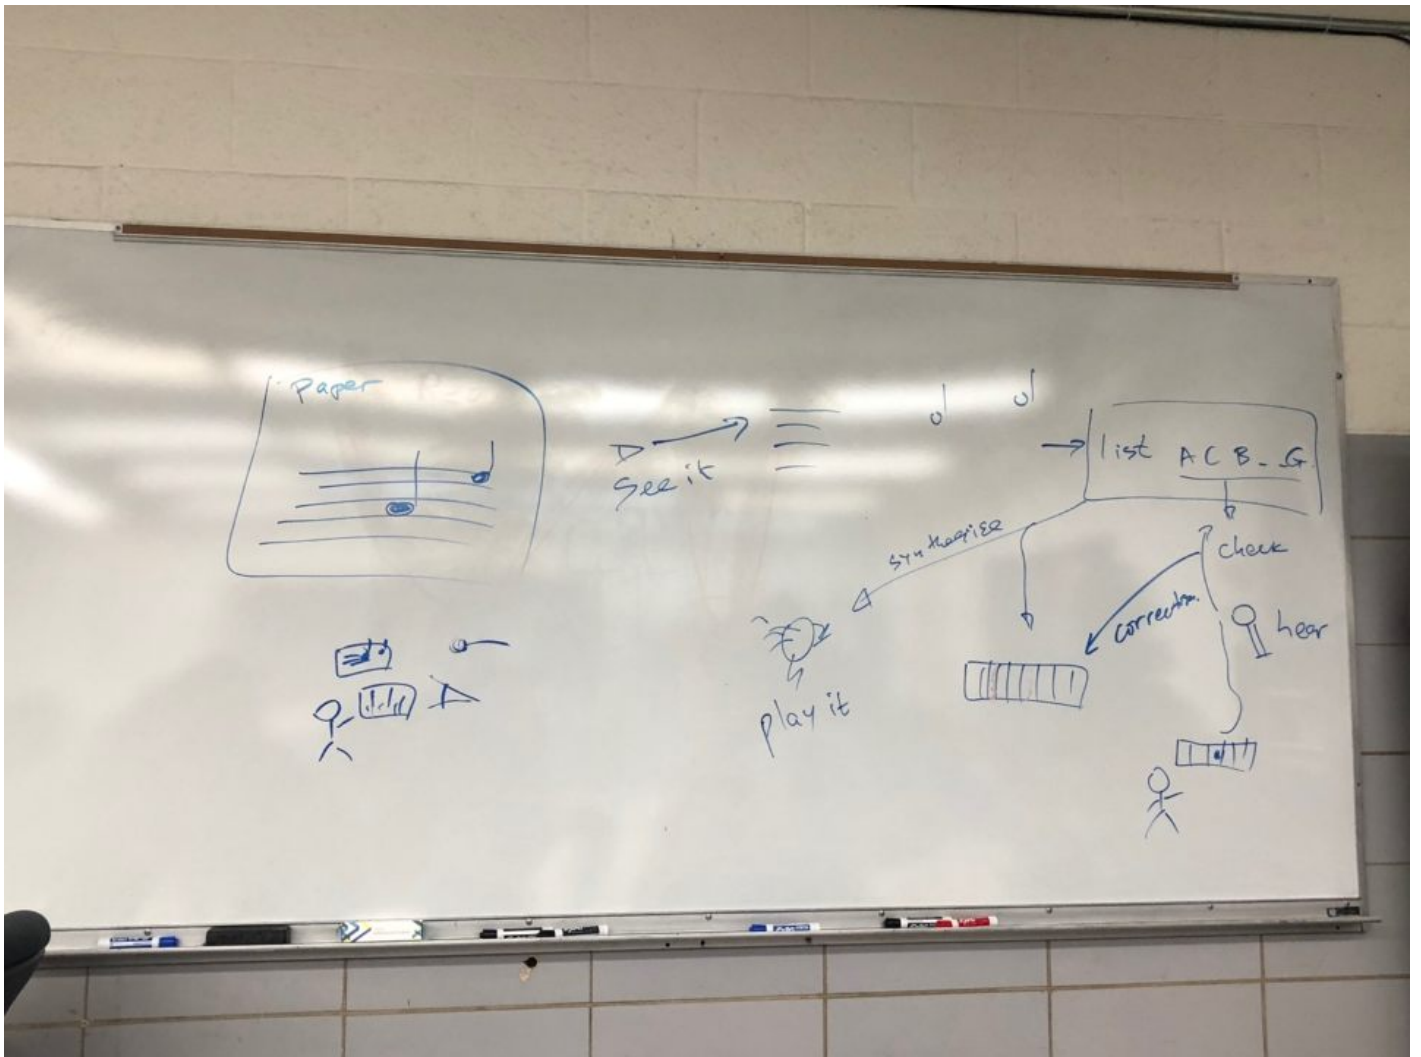 paper
See it
list A C B - - G
synthesize
check
correction
hear
play it